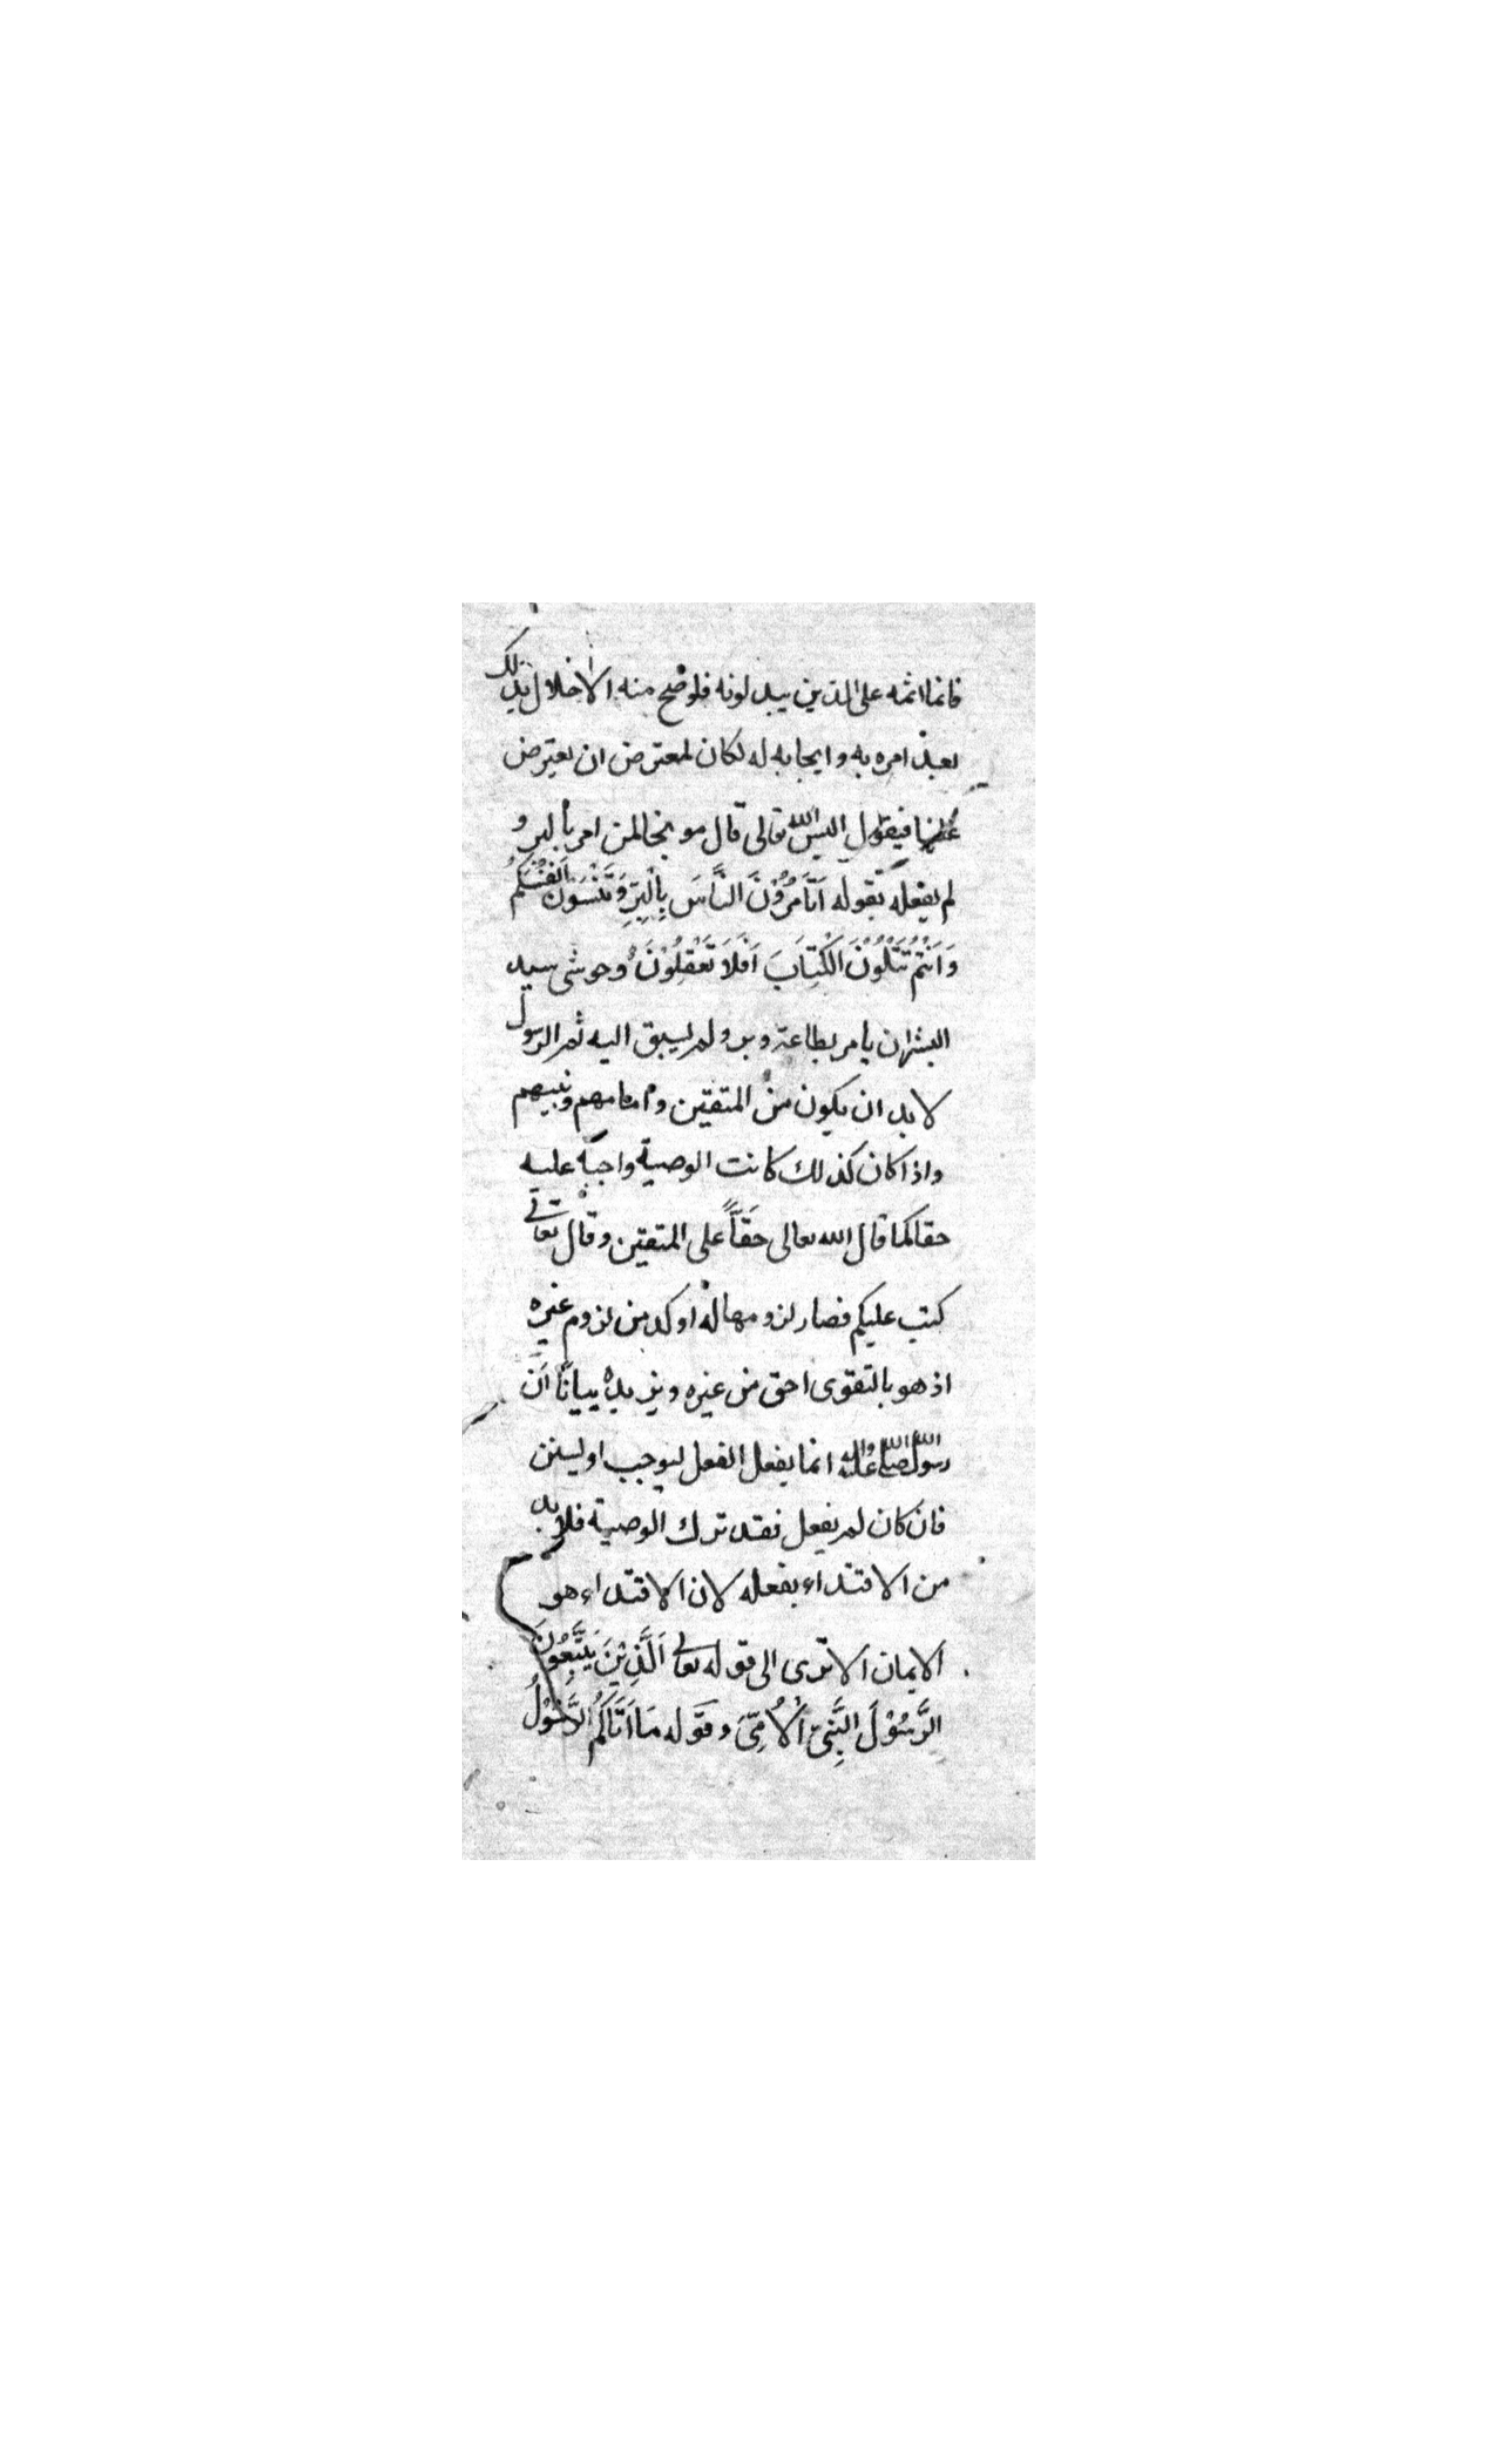 فانما اثمه على الذين يبدلونه فلو صح منه الاخلال بذلك
بعد امره به وايجابه له لكان لمعترض ان يعترض
فيقول اليس الله تعالى قال موبخا لمن امر بالبر و
لم يفعله بقوله اَتَأمُرُوْنَ النَّاسَ بِالْبِرِّ وَتَنْسَوْنَ اَنْفُسَكُمْ
وَاَنْتُمْ تَتْلُوْنَ الْكِتَابَ اَفَلَا تَعْقِلُوْنَ وحوشى سيد
البشر ان يامر بطاعة وبر ولم يسبق اليه ثم الرسول
لا بد ان يكون من المتقين وامامهم ونبيهم
واذا كان كذلك كانت الوصية واجبة عليه
حقا كما قال الله تعالى حَقًّا على المتقين وقال تعالى
كتب عليكم فصار لزومها له اوكد من لزوم غيره
اذ هو بالتقوى احق من غيره ويزيده بيانًا اَنّ
رسول الله صلى الله عليه واله انما يفعل الفعل ليوجب او ليسنن
فان كان لم يفعل فقد ترك الوصية فلا بد
من الاقتداء بفعله لان الاقتداء هو
الايمان الا ترى الى قوله تعالى اَلَّذِيْنَ يَتَّبِعُوْنَ
الرَّسُوْلَ النَّبِىَّ الْاُمِّىَّ وقوله مَا اَتَاكُمُ الرَّسُوْلُ